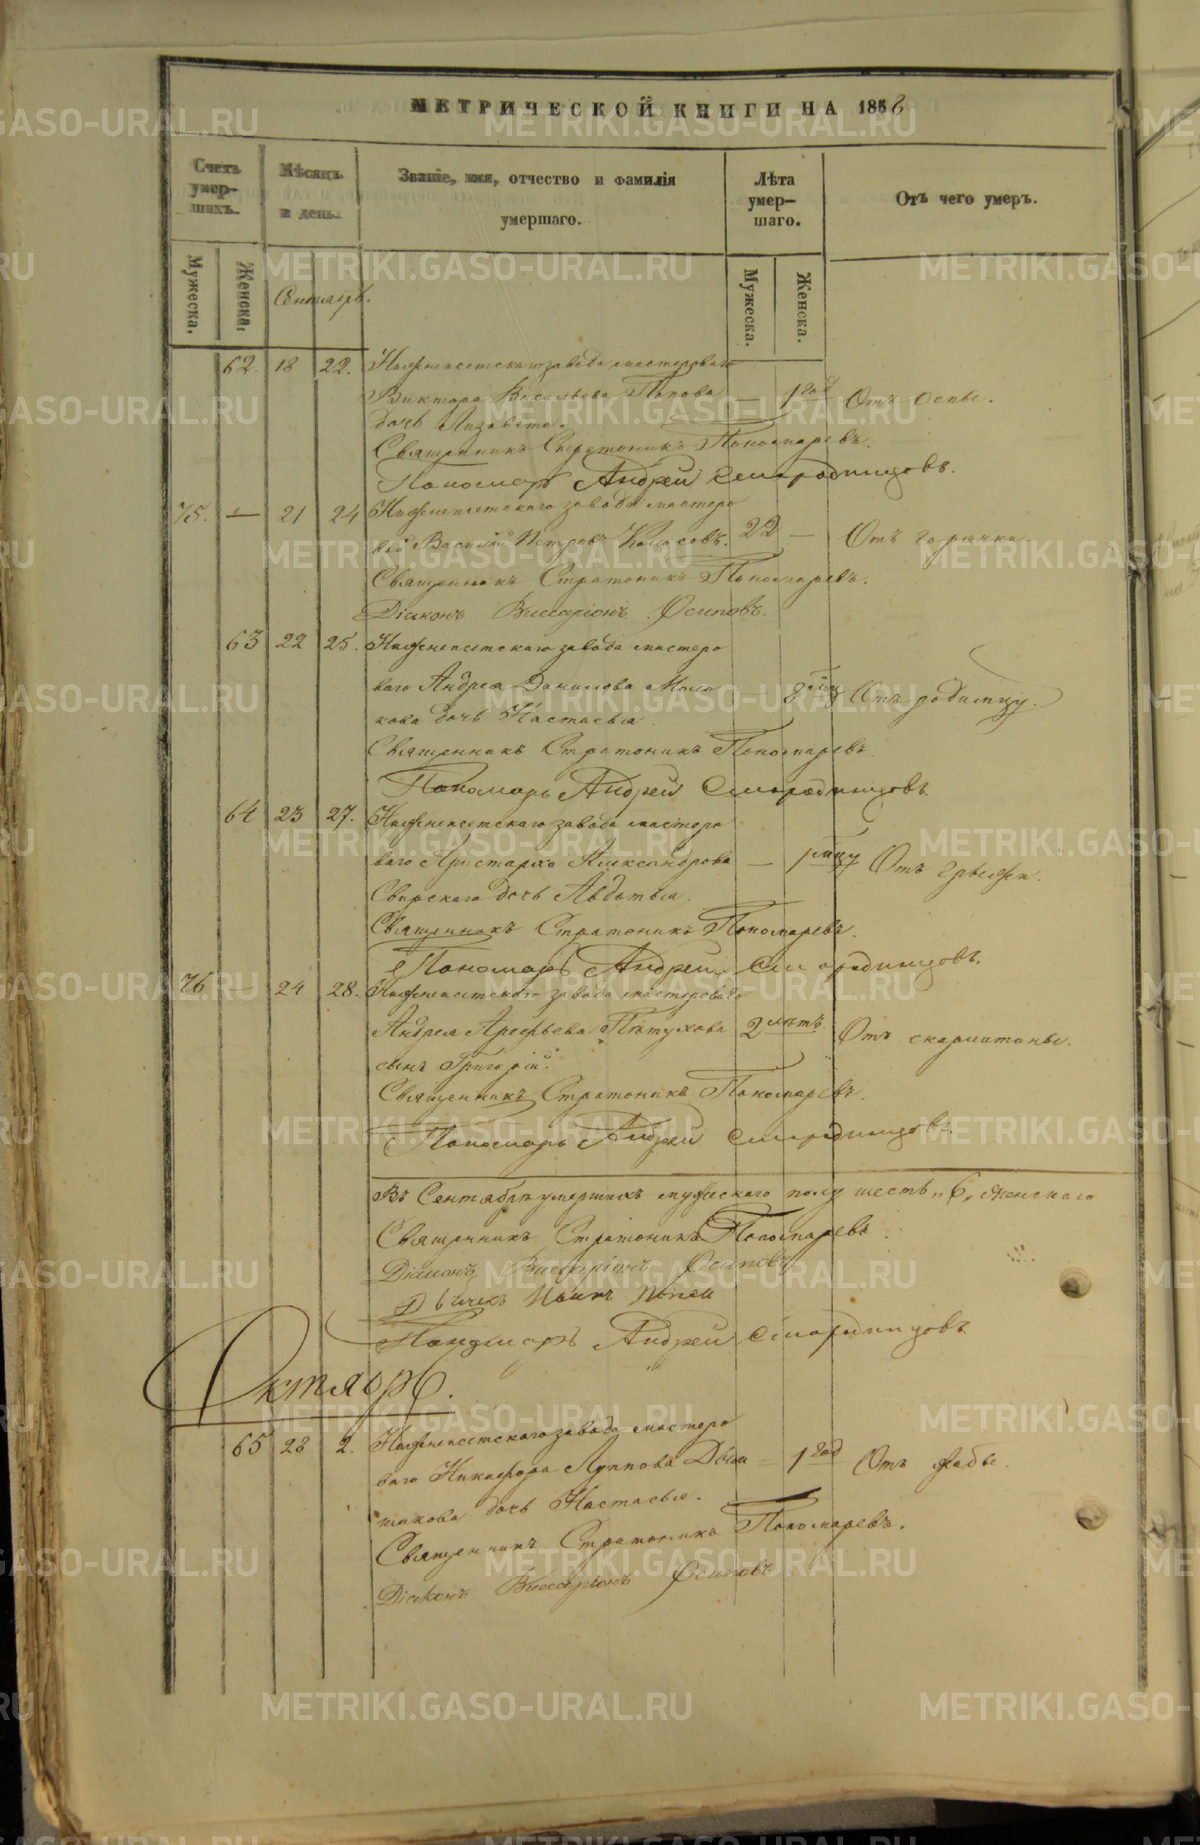 МЕТРИЧЕСКОЙ КНИГИ НА 185
Счетъ умер-шихъ.
Мѣсяцъ и день.
Званіе, имя, отчество и фамилія умершаго.
Лѣта умер-шаго.
Отъ чего умеръ.
Мужеска.
Женска.
Мужеска.
Женска.
Сентябрь.
62. 18 22. Нижнеисетскаго завода мастероваго
Виктора Васильева Попова — 1 год Отъ оспы.
дочь Лизавета.
Священникъ Стратоникъ Пономаревъ.
Пономарь Андрей Смородинцовъ.
75. — 21 24 Нижнеисетскаго завода мастеро
вой Василій Петровъ Колосовъ. 22 — Отъ горячки.
Священникъ Стратоникъ Пономаревъ.
Діаконъ Виссаріонъ Осиповъ.
63 22 25. Нижнеисетскаго завода мастеро
ваго Андрея Данилова — Отъ родимцу.
кова дочь Настасья.
Священникъ Стратоникъ Пономаревъ
Пономарь Андрей Смородинцовъ.
64 23 27. Нижнеисетскаго завода мастеро
ваго Аристарха Александрова — Отъ грыжи.
дочь Авдотья.
Священникъ Стратоникъ Пономаревъ.
Пономарь Андрей Смородинцовъ.
76 — 24 28. Нижнеисетскаго завода мастероваго
Андрея Арефьева Пѣтухова 2 лѣтъ Отъ скарлатины.
сынъ Григорій.
Священникъ Стратоникъ Пономаревъ.
Пономарь Андрей Смородинцовъ.
Въ Сентябрѣ умершихъ мужескаго полу шесть „6„ женскаго
Священникъ Стратоникъ Пономаревъ.
Діаконъ Виссаріонъ Осиповъ
Дьячекъ Попов
Пономарь Андрей Смородинцовъ
Октябрь.
65 28 2. Нижнеисетскаго завода мастеро
ваго Никифора Луппова — 1 год Отъ жабы.
шакова дочь Настасья.
Священникъ Стратоникъ Пономаревъ.
Діаконъ Виссаріонъ Осиповъ
METRIKI.GASO-URAL.RU